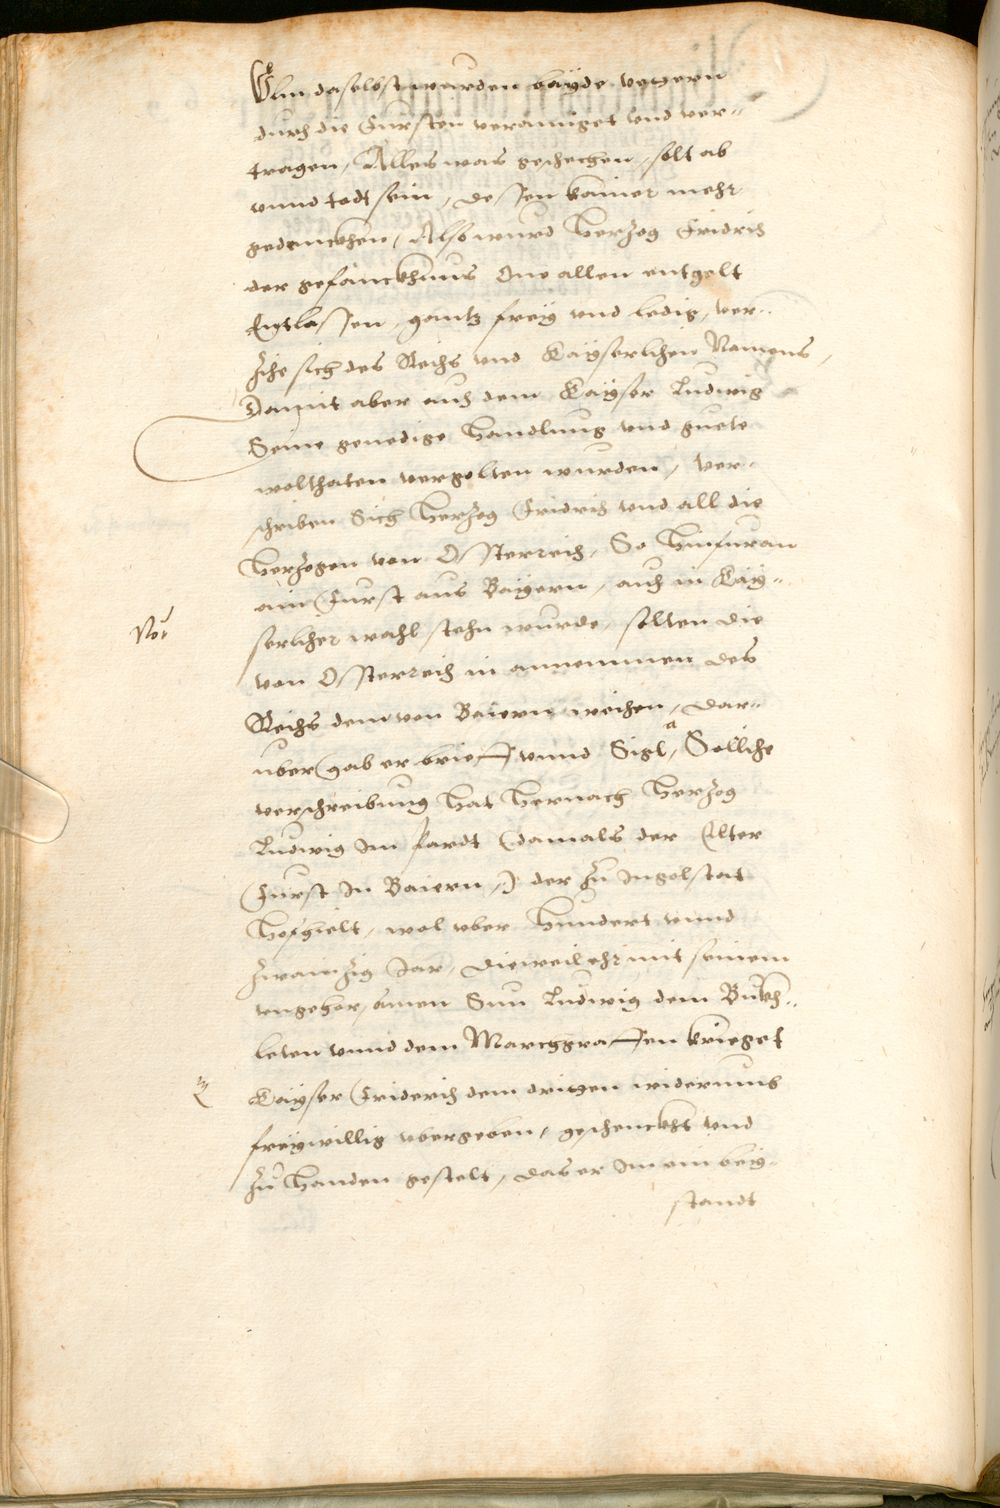 Ulm daselbst wurden bayde vettern
durch die Fursten verainiget vnd ver-
tragen, Alles was geschechen, solt ab
vnnd todt sein, dessen kainer mehr
gedenckhen, Also wurd Herzog Fridrich
der gefanckhnus One allen entgelt
Entlassen, gantz freÿ vnd ledig, ver-
zihe sich des Reichs vnd Kaÿserlichen Namens,
Damit aber auch dem Kaÿser Ludwig
Seine genedige Handlung vnd guete
wolthaten vergolten wurden, ver-
schriben Sich Herzog Fridrich vnd all die
Herzogen von Osterreich, So hinfuran
ain Furst aus Baÿern, auch in Kaÿ-
Not
serlicher wahl stehn wurde, solten die
von Osterreich in annemmen des
Reichs dem von Baiern weichen, Dar-
uber gab er brieff vnnd Sigl, Solliche
verschreibung hat hernach Herzog
Ludwig Im bardt (damals der Elter
Furst In Baiern,) der zu Ingolstat
Hofhielt, wol vber hundert vnnd
zwainzig Jar, dieweil ehr mit seinem
vngehorsamen Sun Ludwig dem Bukh-
leten vnnd dem Marcggraffen krieget
Kaÿser Friderich dem driten widerumb
freÿwillig vbergeben, geschenckht vnd
zu handen gestelt, das er Im ein beÿ-
standt